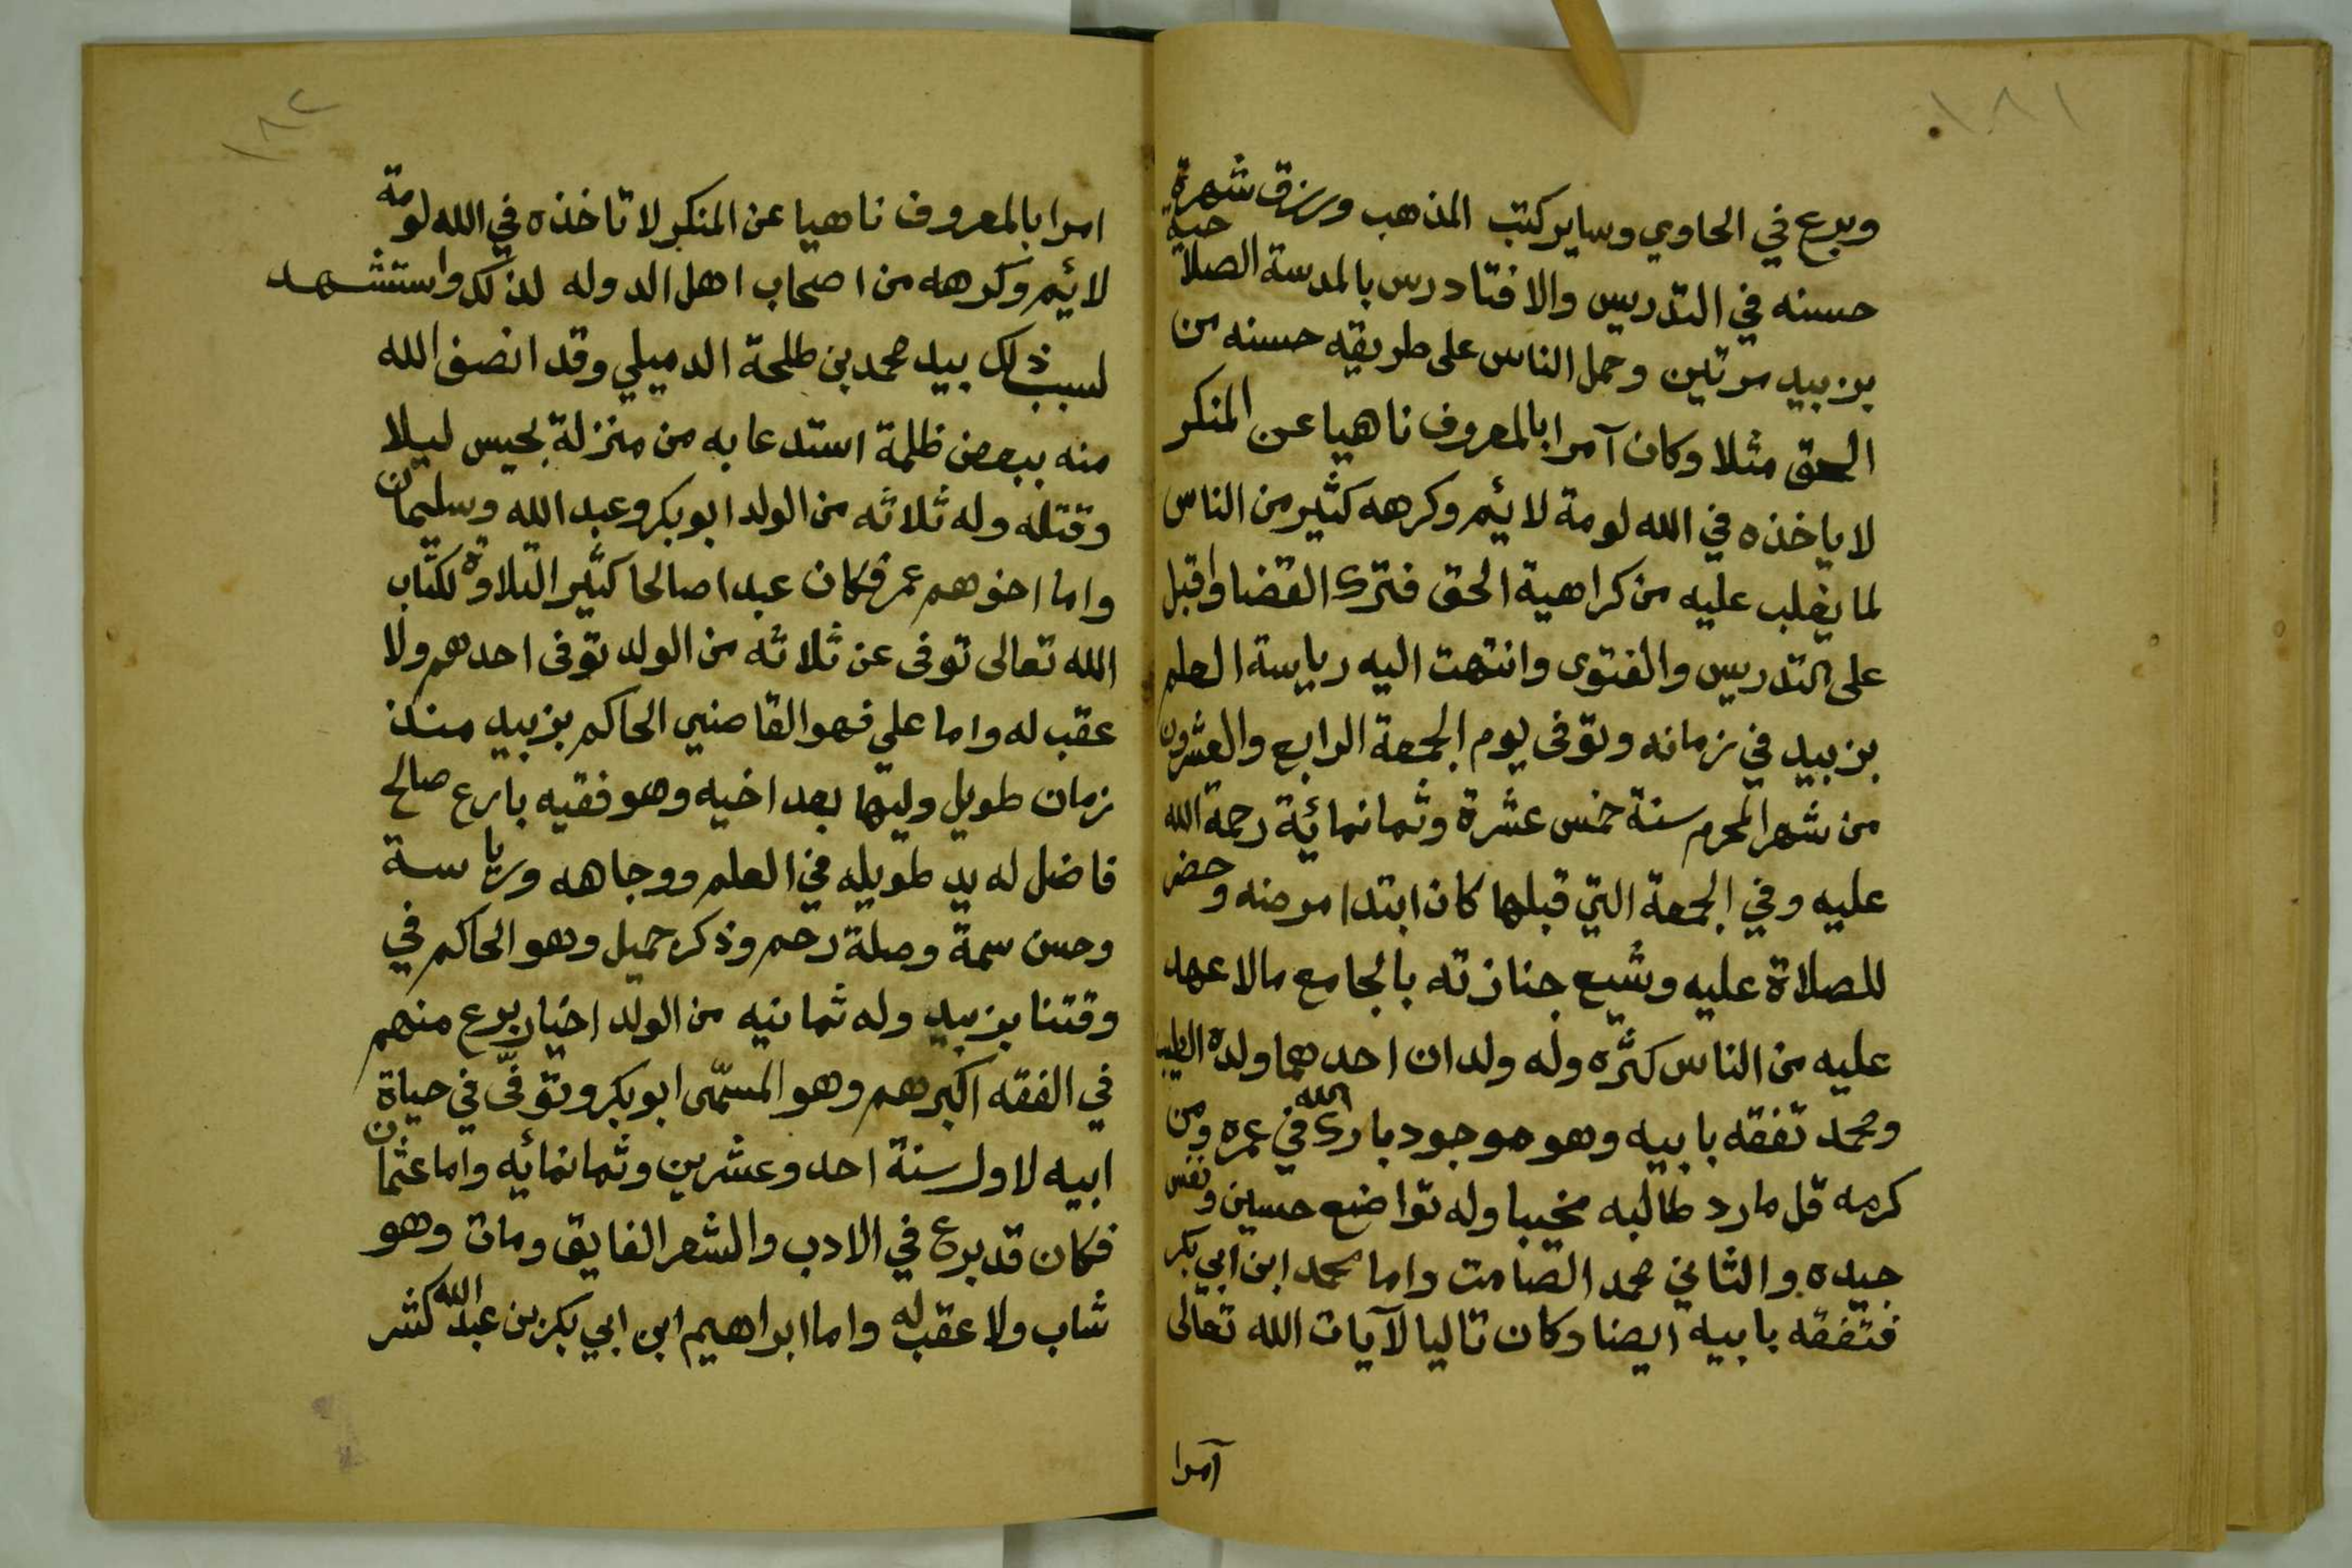 ١٨١
وبرع في الحاوي وساير كتب المذهب ورزق شهرة
حسنه في التدريس والافتا ودرس بالمدسة الصلاحية
بزبيد مرتين وحمل الناس على طريقه حسنه من
الحق مثلا وكان آمرا بالمعروف ناهيا عن المنكر
لا ياخذه في الله لومة لائيم وكرهه كثير من الناس
لما يغلب عليه من كراهية الحق فترك القضا واقبل
على التدريس والفتوى وانتهت اليه رياسة العلم
بزبيد في زمانه وتوفى يوم الجمعة الرابع والعشرون
من شهر المحرم سنة خمس عشرة وثمانمائية رحمة الله
عليه وفي الجمعة التي قبلها كان ابتدا مرضه وحضر
للصلاة عليه وشيع جنازته بالجامع مالا عهد
عليه من الناس كثره وله ولدان احدهما ولده الطيب
ومحمد تفقه بابيه وهو موجود بارك الله في عمره ومن
كرمه قل مارد طالبه مخيبا وله تواضع حسين ونفس
جيده والثاني محمد الصامت واما محمد ابن ابي بكر
فتفقه بابيه ايضا وكان تاليا لآيات الله تعالى
آمرا
١٨٢
امرا بالمعروف ناهيا عن المنكر لا تاخذه في الله لومة
لائيم وكرهه من اصحاب اهل الدوله لذلك واستشهد
لسبب ذلك بيد محمد بن طلحة الدميلي وقد انصف الله
منه ببعض ظلمة استدعا به من منزلة بحيس ليلا
وقتله وله ثلاثه من الولد ابوبكر وعبد الله وسليمان
واما اخوهم عمر فكان عبدا صالحا كثير التلاوة لكتاب
الله تعالى توفى عن ثلاثه من الولد توفى احدهم ولا
عقب له واما علي فهو القاضي الحاكم بزبيد منذ
زمان طويل وليها بعد اخيه وهو فقيه بارع صالح
فاضل له يد طويله في العلم ووجاهه ورياسة
وحسن سمة وصلة رحم وذكر جميل وهو الحاكم في
وقتنا بزبيد وله ثمانيه من الولد اخيار برع منهم
في الفقه اكبرهم وهو المسمّى ابوبكر وتوفّى في حياة
ابيه لاول سنة احد وعشرين وثمانمائيه واما عثمان
فكان قد برع في الادب والشعر الفايق ومات وهو
شاب ولا عقب له واما ابراهيم ابن ابي بكر بن عبد الله كثر